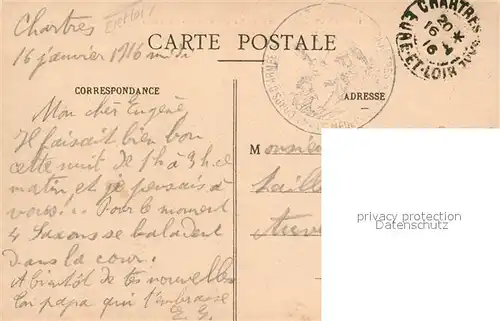 Chartres
16 janvier 1916 midi
CARTE POSTALE
CHARTRES
20
16 1
16
EURE-ET-LOIR
CORRESPONDANCE
ADRESSE
Mon cher Eugène
Il faisait bien bon
cette nuit de 1h à 3h. ce
matin et je pensais à
vous!.. Pour le moment
4 Saxons se baladent
dans la cour.
A bientôt de tes nouvelles
Ton papa qui t'embrasse
Monsieur
privacy protection
watermark